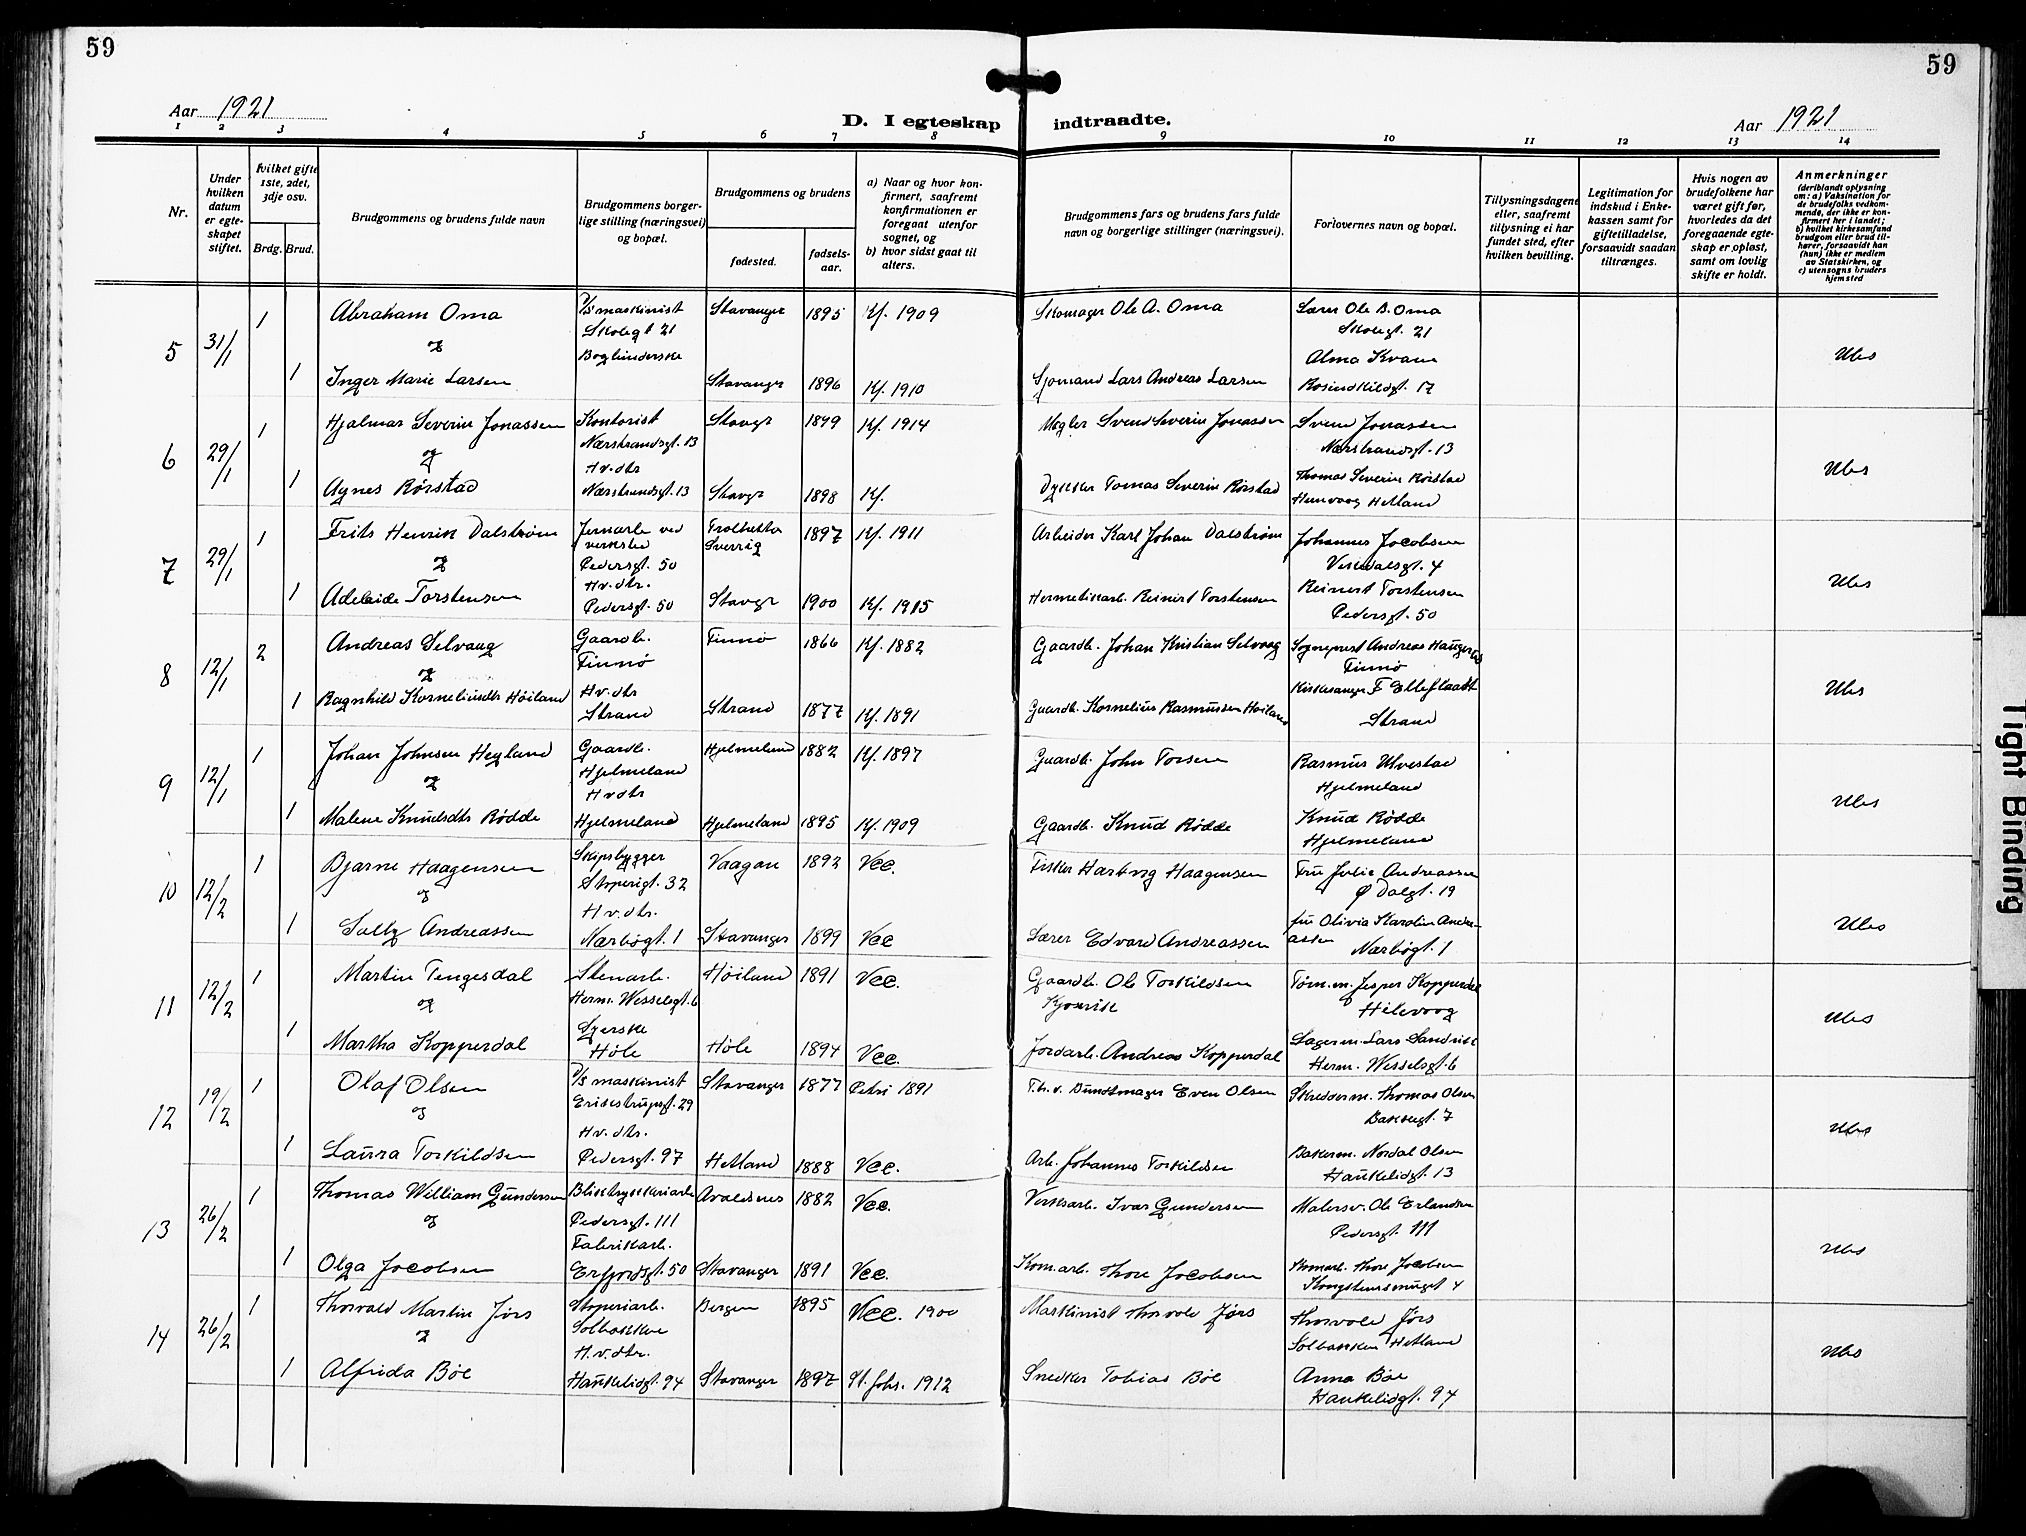 59
59
Aar 1921
D. I egteskap indtraadte.
Aar 1921
1 2 3 4 5 6 7 8 9 10 11 12 13 14
Nr.
Under hvilken datum er egteskapet stiftet.
hvilket gifte 1ste, 2det, 3dje osv.
Brdg. Brud.
Brudgommens og brudens fulde navn
Brudgommens borgerlige stilling (næringsvei) og bopæl.
Brudgommens og brudens
fødested.
fødselsaar.
a) Naar og hvor konfirmert, saafremt konfirmationen er foregaat utenfor sognet, og
b) hvor sidst gaat til alters.
Brudgommens fars og brudens fars fulde navn og borgerlige stillinger (næringsvei).
Forlovernes navn og bopæl.
Tillysningsdagene eller, saafremt tillysning ei har fundet sted, efter hvilken bevilling.
Legitimation for indskud i Enkekassen samt for giftetilladelse, forsaavidt saadan tiltrænges.
Hvis nogen av brudefolkene har været gift før, hvorledes da det foregaaende egteskap er opløst, samt om lovlig skifte er holdt.
Anmerkninger
(deriblandt oplysning om: a) Vaksination for de brudefolks vedkommende, der ikke er konfirmert her i landet;
b) hvilket kirkesamfund brudgom eller brud tilhører, forsaavidt han (hun) ikke er medlem av Statskirken, og
c) utensogns bruders hjemsted
5 31/1 1 Abraham Oma D/S maskinist Skolegt 21 Stavanger 1895 Kf. 1909 Skomager Ole A. Oma Lærer Ole B. Oma Skolegt. 21
og
1 Inger Marie Larsen Stavanger 1896 Kf. 1910 Sjømand Lars Andreas Larsen Alma Kvam 17 Ubs
6 29/1 1 Hjalmar Severin Jonassen Kontorist Nærstrandsgt. 13 Stavgr 1899 Kf. 1914 Megler Svend Severin Jonassen Svend Jonassen Nærstrandsgt. 13
og
1 Agnes Rørstad Hv. dtr Nærstrandsgt. 13 Stavgr 1898 Kf. Dykker Tomas Severin Rørstad Thomas Severin Rørstad Hetland Ubs
7 29/1 1 Frits Henrik Dalstrøm Jernarb. ved verksted Pedersgt. 50 Trolhetta Sverrig 1897 Kf. 1911 Arbeider Karl Johan Dalstrøm Johannes Jacobsen Verkdalsgt. 4
og
1 Adelaide Torstensen Hv. dtr. Pedersgt. 50 Stavgr 1900 Kf. 1915 Hermetikarb. Reinert Torstensen Reinert Torstensen Pedersgt. 50 Ubs
8 12/1 2 Andreas Selvaag Gaardb. Finnø Finnø 1866 Kf. 1882 Gaardb. Johan Kristian Selvaag Sogneprest Andreas Finnø
og
1 Ragnhild Korneliusdtr Høiland Hv. dtr Strand Strand 1877 Kf. 1891 Gaardb. Kornelius Rasmussen Høiland Kirkesanger Strand Ubs
9 12/1 1 Johan Johnsen Hegland Gaardb. Hjelmeland Hjelmeland 1882 Kf. 1897 Gaardb. John Torsen Rasmus Ulvestad Hjelmeland
og
1 Malene Knudsdtr Rødde Hv dtr Hjelmeland Hjelmeland 1895 Kf. 1909 Gaardb. Knud Rødde Knud Rødde Hjelmeland Ubs
10 12/2 1 Bjarne Haagensen Skipsbygger Støperigt. 32 Vaagan 1892 Vcc. Fisker Hartvig Haagensen Fru Julie Andreassen Ø Dalgt. 19
og
1 Solly Andreassen Hv. dtr. Nærbøgt. 1 Stavanger 1899 Vcc Lærer Edvard Andreassen fru Olivia Karolin Andreassen Nærbøgt. 1 Ubs
11 12/2 1 Martin Tengesdal Stenarb. Herm. Wesselsgt. 6 Høiland 1891 Vcc. Gaardb. Ole Torkildsen Tøm.m. Jesper Kopperdal Hilevaag
og
1 Martha Kopperdal Syerske Høle Høle 1894 Vcc. Jordarb. Andreas Kopperdal Lagerm. Lars Sandvik Herm. Wesselsgt. 6 Ubs
12 19/2 1 Olaf Olsen D/S maskinist 29 Stavanger 1877 Petri 1891 Buntmager Even Olsen Skredderm. Thomas Olsen Bakkegt. 7
og
1 Laura Torkildsen Hv. dtr. Pedersgt. 97 Hetland 1888 Vcc. Arb. Johannes Torkildsen Bakerm. Nordal Olsen Haukelidgt. 13 Ubs
13 26/2 1 Thomas William Gundersen Bliktrykkeriarb Pedersgt. 111 Avaldsnes 1882 Vcc. Verksarb. Ivar Gundersen Malersv. Ole Erlandsen Pedersgt. 111
og
1 Olga Jacobsen Fabrikarb. Erfjordsgt. 50 Stavanger 1891 Vcc. Kom.arb. Thore Jacobsen Kom.arb. Thore Jacobsen 4 Ubs
14 26/2 1 Thorvald Martin Jørs Støperiarb. Solbakken Bergen 1895 Vcc. 1900 Maskinist Thorvald Jørs Thorvald Jørs Solbakken Hetland
og
1 Alfrida Bøe H.v. dtr. Haukelidgt. 94 Stavanger 1897 St. Johs. 1912 Snedker Tobias Bøe Anna Bøe Haukelidgt. 94 Ubs
Tight Binding